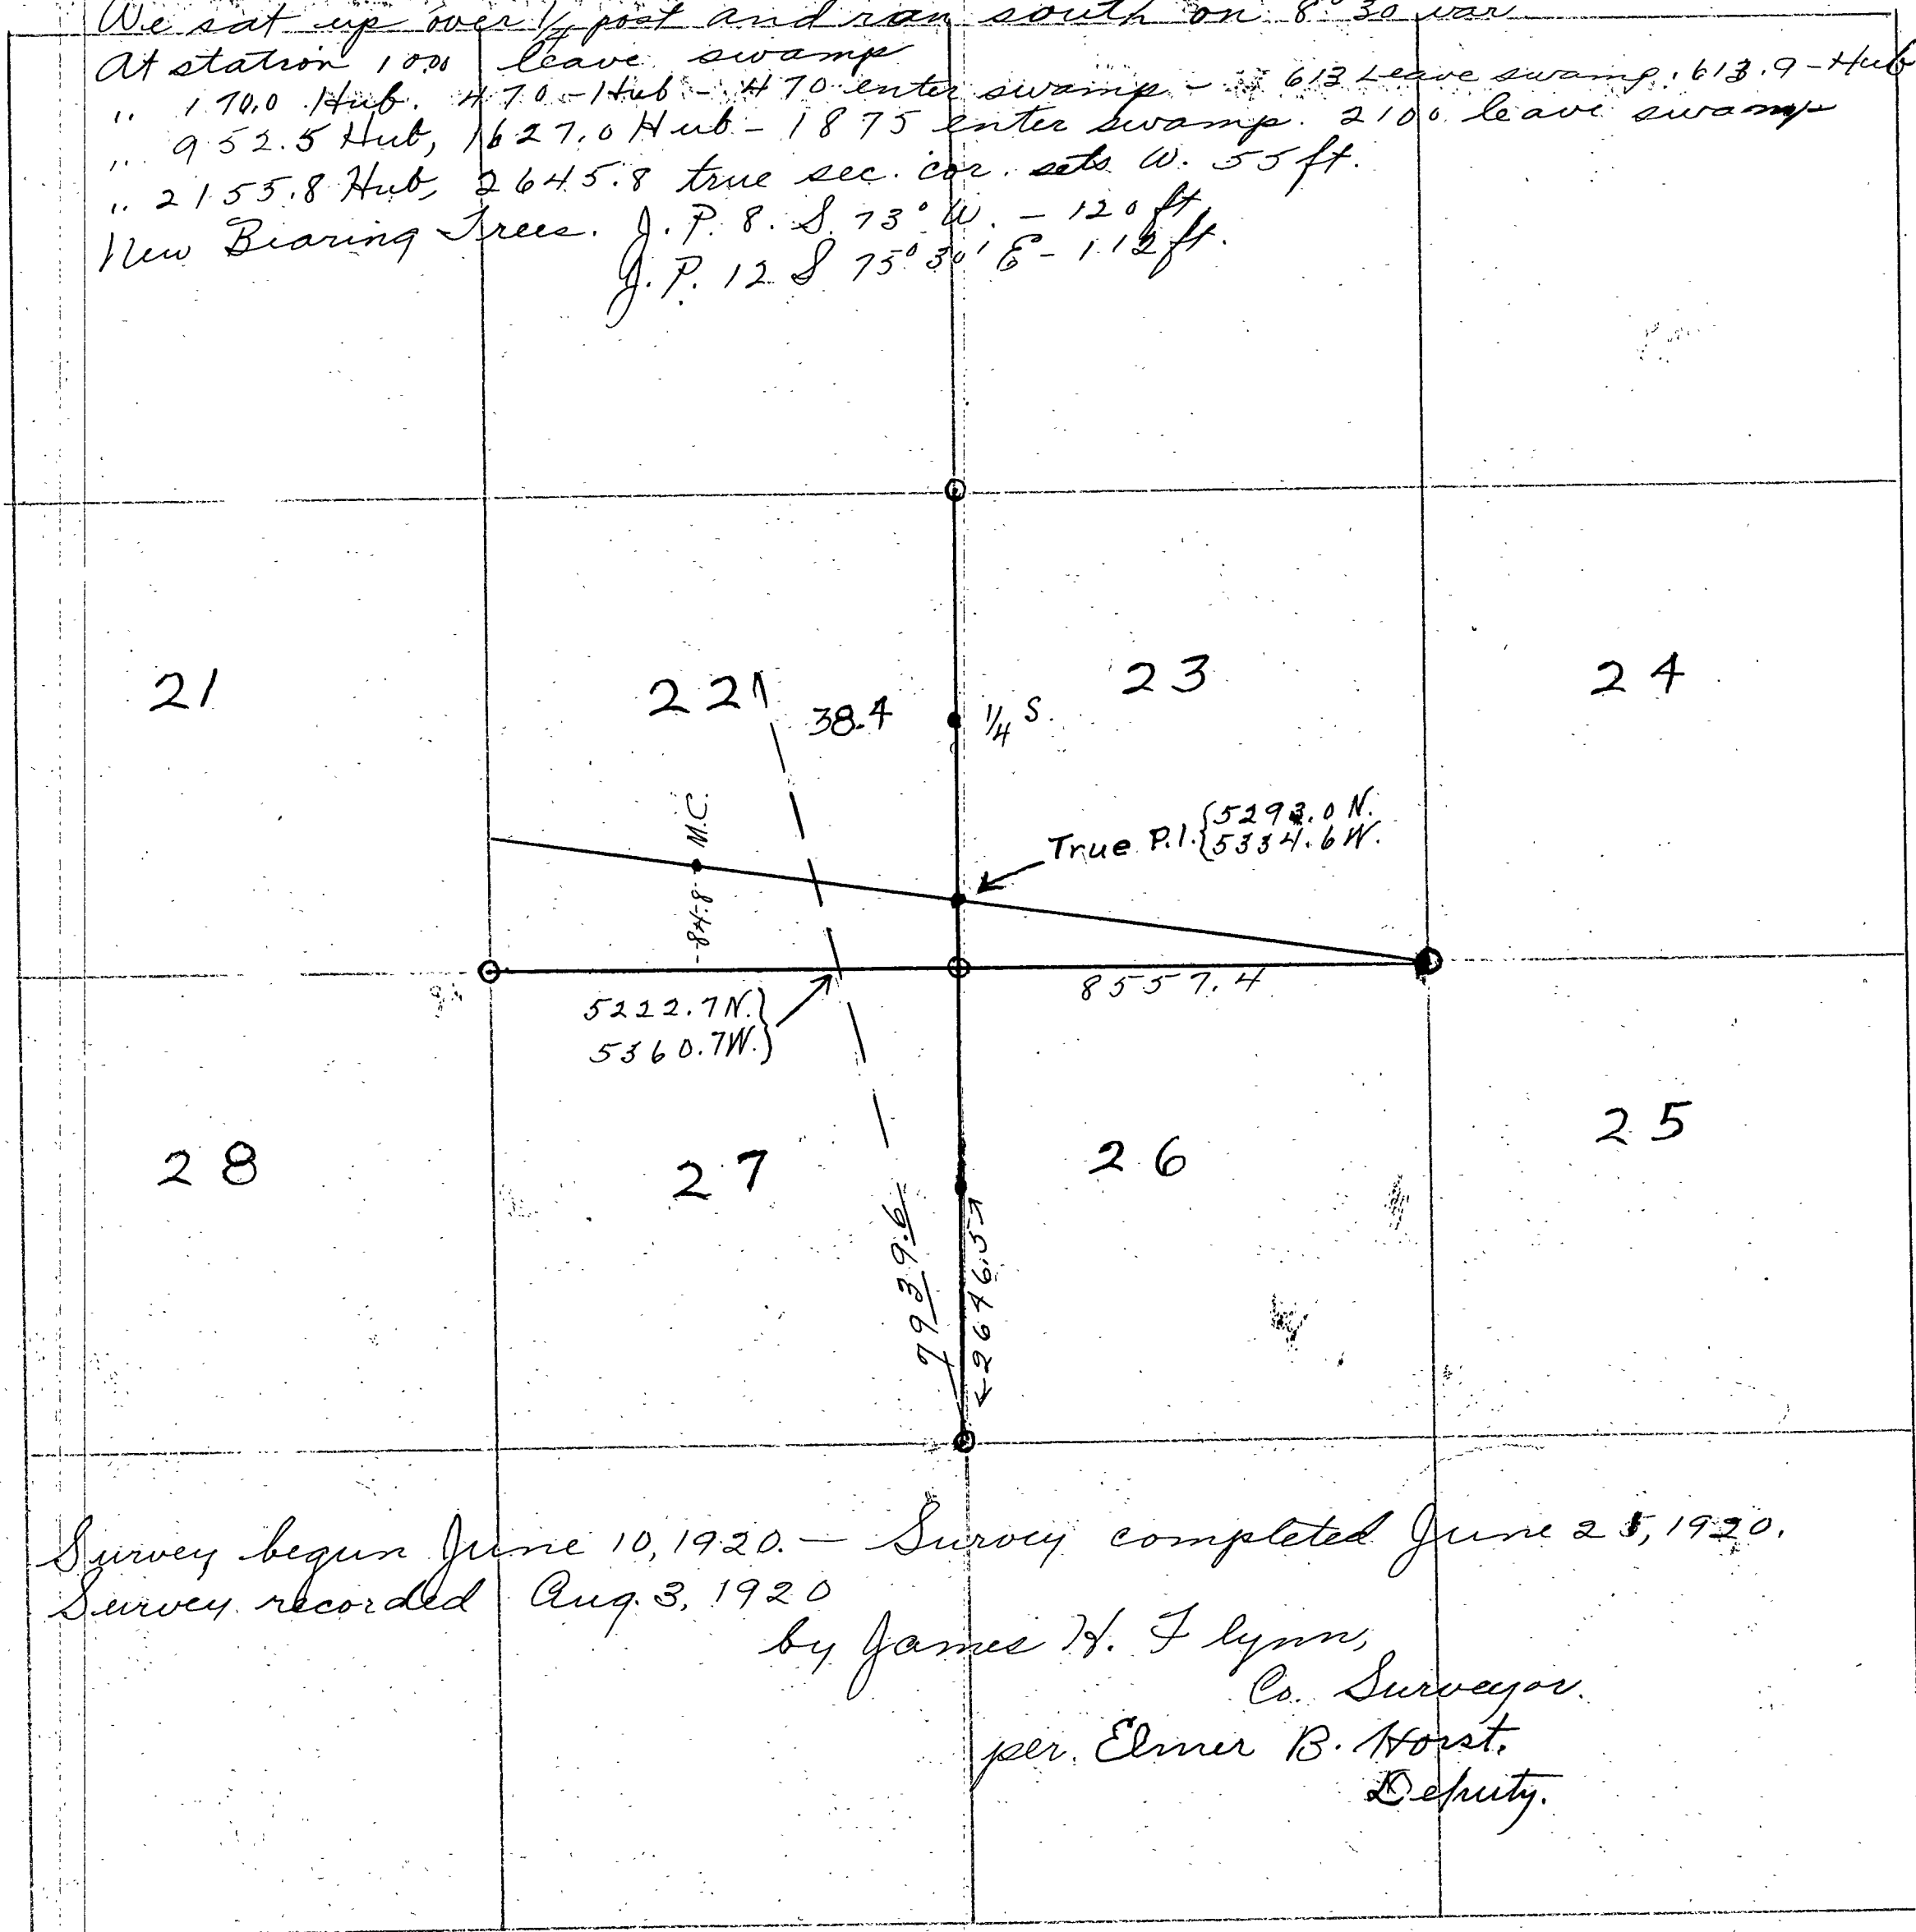 We sat up over 1/4 post and ran south on 8° 30 var
At station 100.0 leave swamp
" 170.0 Hub. 470 - Hub - 470 enter swamp - 613 Leave swamp. 613.9 - Hub
" 952.5 Hub, 1627.0 Hub - 1875 enter swamp. 2100 leave swamp
" 2155.8 Hub, 2645.8 true sec. cor. sets W. 55 ft.
New Bearing Trees. J. P. 8. S. 73° W. - 120 ft.
J. P. 12 S 75° 30' E - 112 ft.
21
22
23
24
38.4
1/4 S.
M.C.
84.8
True P.I. {5293.0 N.
5334.6 W.
8557.4
5222.7 N.}
5360.7 W.}
28
27
26
25
7939.6
2646.5
Survey begun June 10, 1920. — Survey completed June 25, 1920.
Survey recorded Aug. 3, 1920
by James H. Flynn,
Co. Surveyor.
per. Elmer B. Horst.
Deputy.